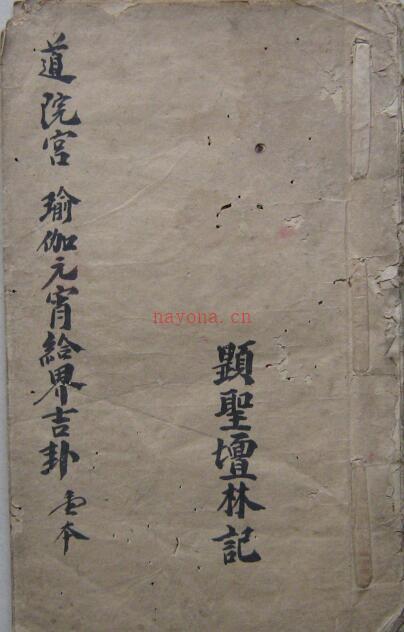 顕聖壇林記
道院宫 瑜伽元宵給界吉卦 本
nayona.cn